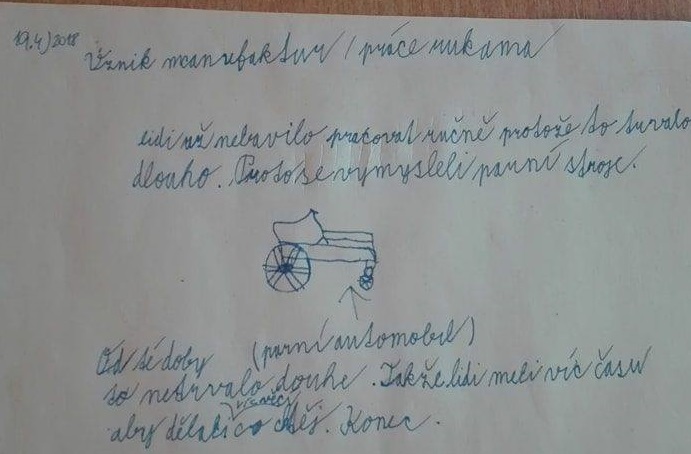 19.4) 2018
Vznik manufaktur / práce rukama
lidi už nebavilo pracovat ručně protože to turalo
dlouho. Proto se vymysleli parní stroje.
(parní automobil)
Od té doby
to netrvalo douhe. Takže lidi meli víc času
aby dělali co chtěj. Konec.